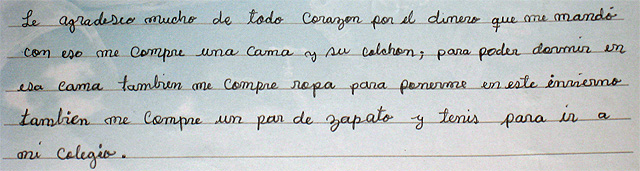 Le agradesco mucho de todo corazon por el dinero que me mandó
con eso me compre una cama y su colchon; para poder dormir en
esa cama tambien me compre ropa para ponerme en este invierno
tambien me compre un par de zapato y tenis para ir a
mi colegio.